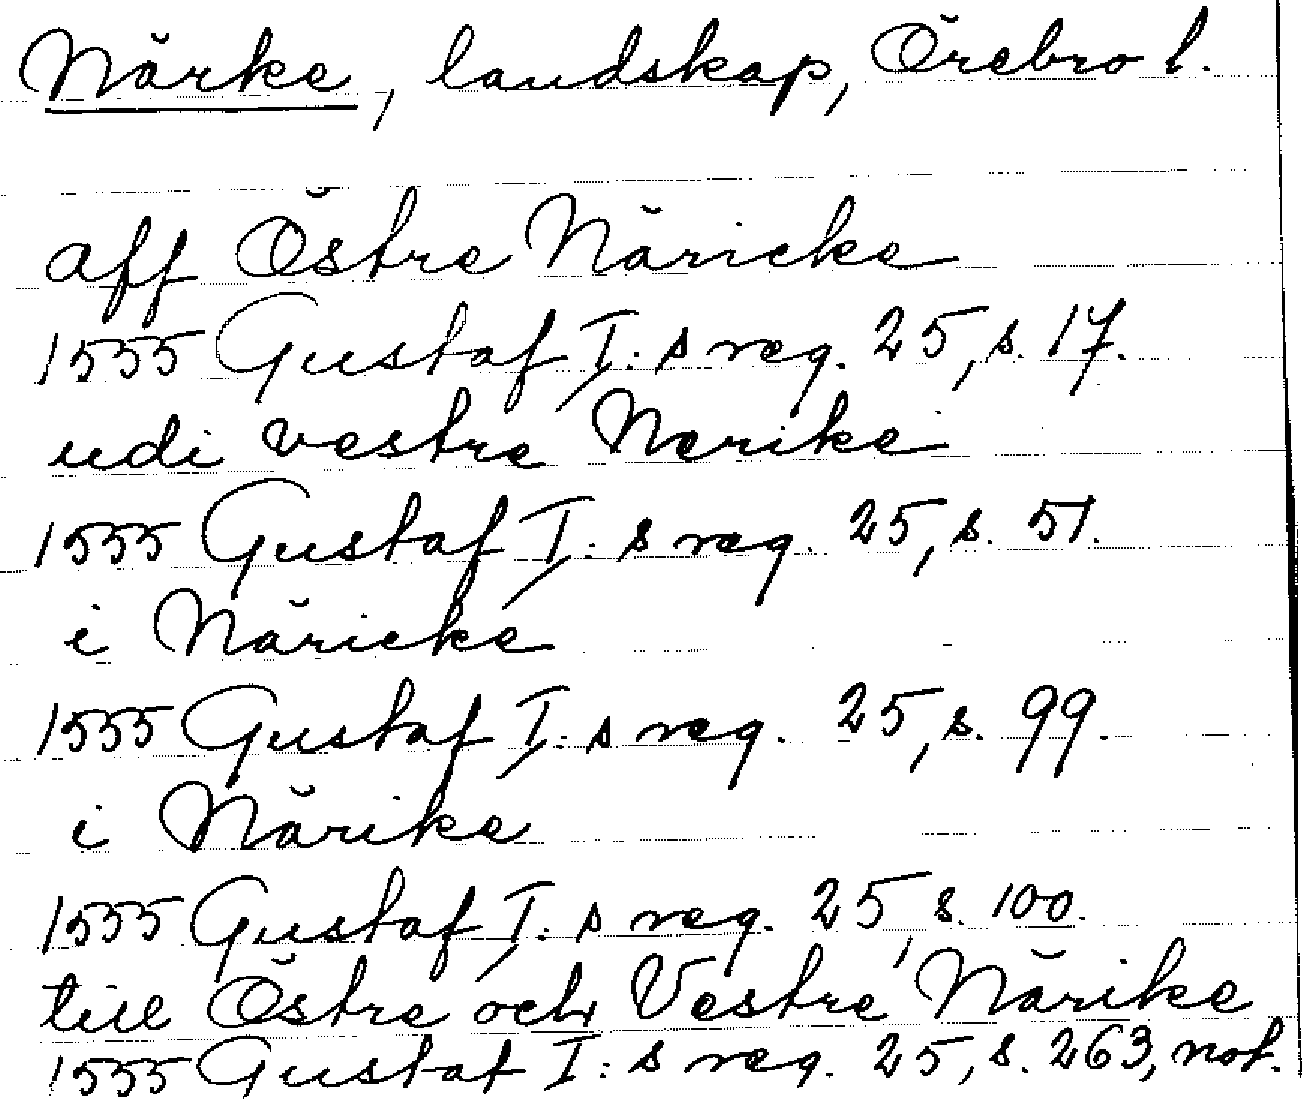 Närke, landskap, Örebro l.
aff Östre Näricke
1555 Gustaf I:s reg. 25, s. 17.
udi vestre Nerike
1555 Gustaf I:s reg. 25, s. 51.
i Näricke
1555 Gustaf I:s reg. 25, s. 99.
i Närike
1555 Gustaf I:s reg. 25, s. 100.
till Östre och Vestre Närike
1555 Gustaf I:s reg. 25, s. 263, not.